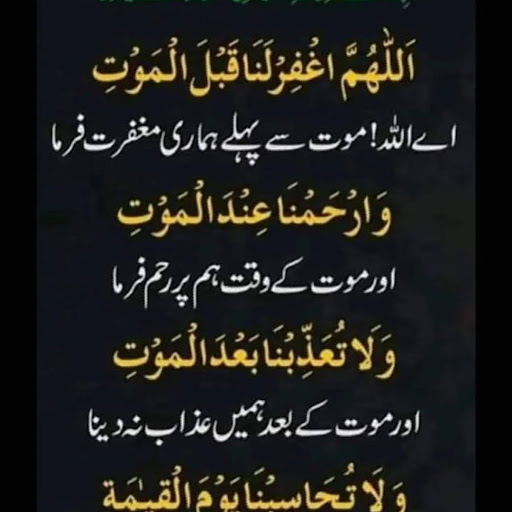 اَللّٰهُمَّ اغْفِرْلَنَا قَبْلَ الْمَوْتِ
اے اللہ! موت سے پہلے ہماری مغفرت فرما
وَارْحَمْنَا عِنْدَ الْمَوْتِ
اور موت کے وقت ہم پر رحم فرما
وَلَا تُعَذِّبْنَا بَعْدَ الْمَوْتِ
اور موت کے بعد ہمیں عذاب نہ دینا
وَلَا تُحَاسِبْنَا يَوْمَ الْقِيٰمَة